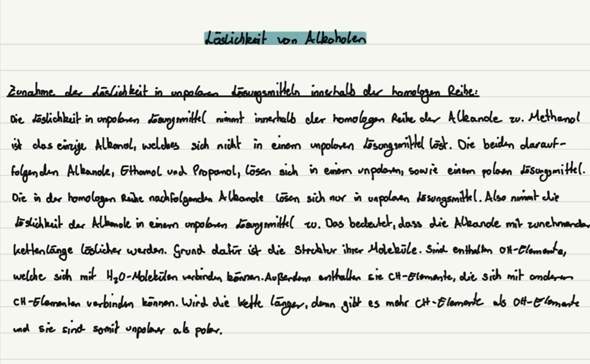 Löslichkeit von Alkoholen
Zunahme der Löslichkeit in unpolaren Lösungsmitteln innerhalb der homologen Reihe:
Die Löslichkeit in unpolaren Lösungsmittel nimmt innerhalb der homologen Reihe der Alkanole zu. Methanol
ist das einzige Alkanol, welches sich nicht in einem unpolaren Lösungsmittel löst. Die beiden darauf-
folgenden Alkanole, Ethanol und Propanol, lösen sich in einem unpolaren, sowie einem polaren Lösungsmittel.
Die in der homologen Reihe nachfolgenden Alkanole lösen sich nur in unpolaren Lösungsmittel. Also nimmt die
Löslichkeit der Alkanole in einem unpolaren Lösungsmittel zu. Das bedeutet, dass die Alkanole mit zunehmender
Kettenlänge löslicher werden. Grund dafür ist die Struktur ihrer Moleküle. Sind enthalten OH-Elemente,
welche sich mit H₂O-Molekülen verbinden können. Außerdem enthalten sie CH-Elemente, die sich mit anderen
CH-Elementen verbinden können. Wird die Kette länger, dann gibt es mehr CH-Elemente als OH-Elemente
und sie sind somit unpolarer als polar.